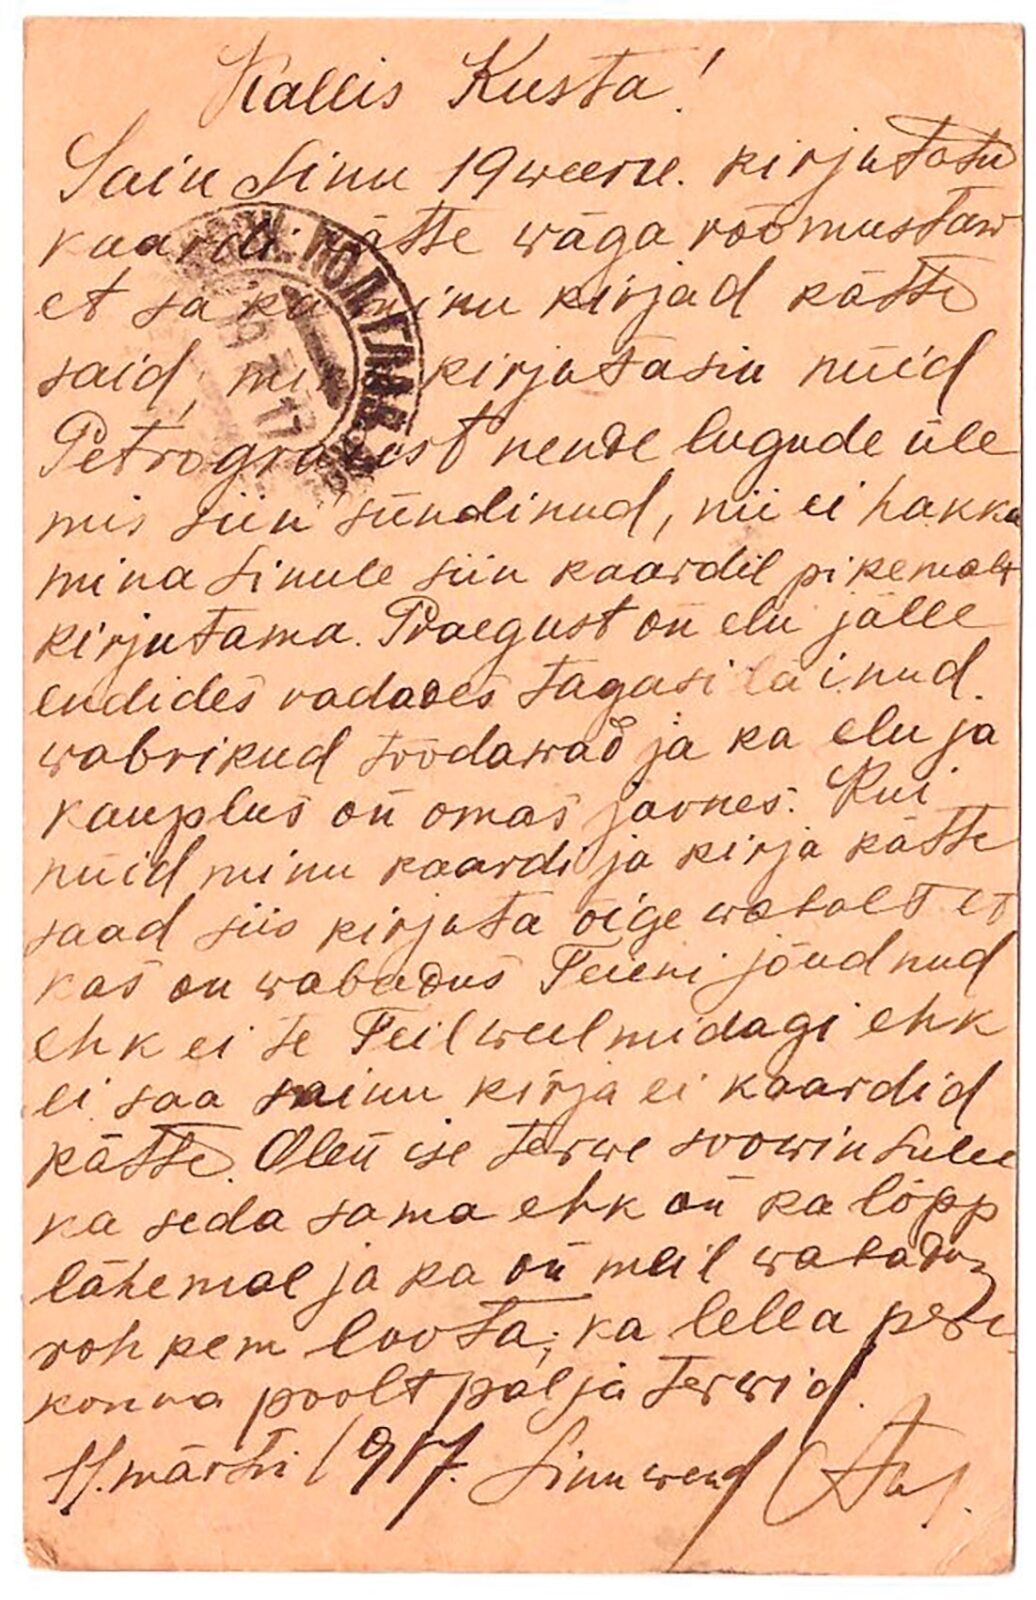 Kallis Kusta!
Sain Sinu 19 weebr. kirjutatu
kaardi kätte wäga rõõmustaw
et sa ka minu kirjad kätte
said, mina kirjutasin nüid
Petrogradist nende lugude üle
mis siin sündinud, nii ei hakka
mina sinule siin kaardil pikemalt
kirjutama. Praegust on elu jälle
endides radades tagasi läinud.
wabrikud töödawad ja ka elu ja
kauplus on omas joones. Kui
nüid minu kaardi ja kirja kätte
saad siis kirjuta õige wabalt et
kas on wabadus Teieni jõudnud
ehk ei te Teil weel midagi ehk
ei saa minu kirja ei kaardid
kätte. Olen ise terwe soowin sulle
ka seda sama ehk on ka lõpp
lähemal ja ka on meil wabadus
rohkem loota; ka lella pere
konna poolt palju terwid.
11. märtsi 1917. Sinu wend